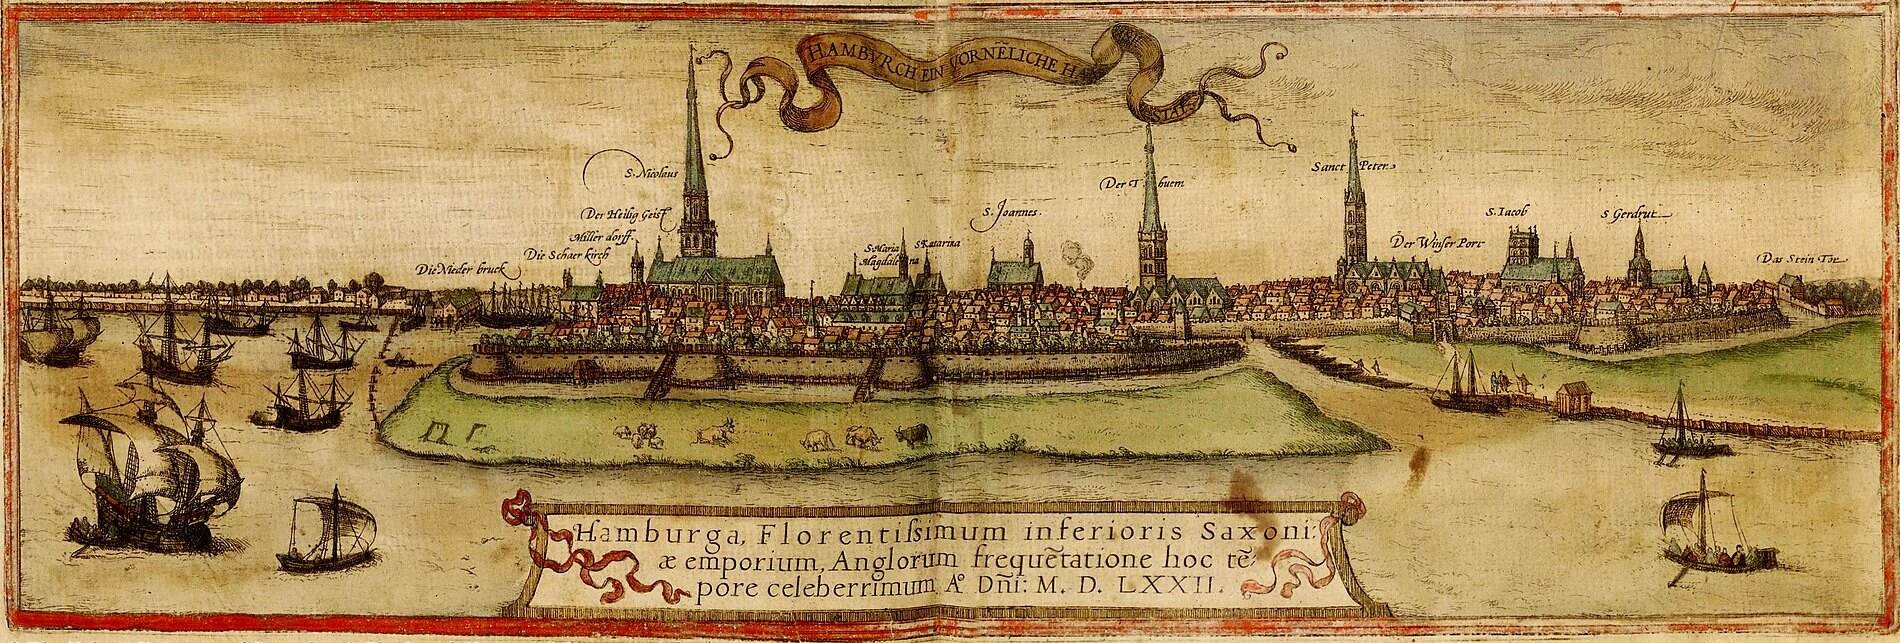 HAMBVRCH EIN VORNELICHE HA
STAT
S. Nicolaus
Der Heilig Geist
Miller dorff.
Die Schaer kirch
Die Nieder bruck
S. Maria
Magdalena
S. Katarina
S. Joannes.
Sanct Peter
Der Winser Port
S. Iacob
S Gerdrut
Das Stein Tor
Hamburga, Florentiſsimum inferioris Saxoni:
æ emporium, Anglorum frequẽtatione hoc tẽ:
pore celeberrimum, Aº Dñi: M. D. LXXII.